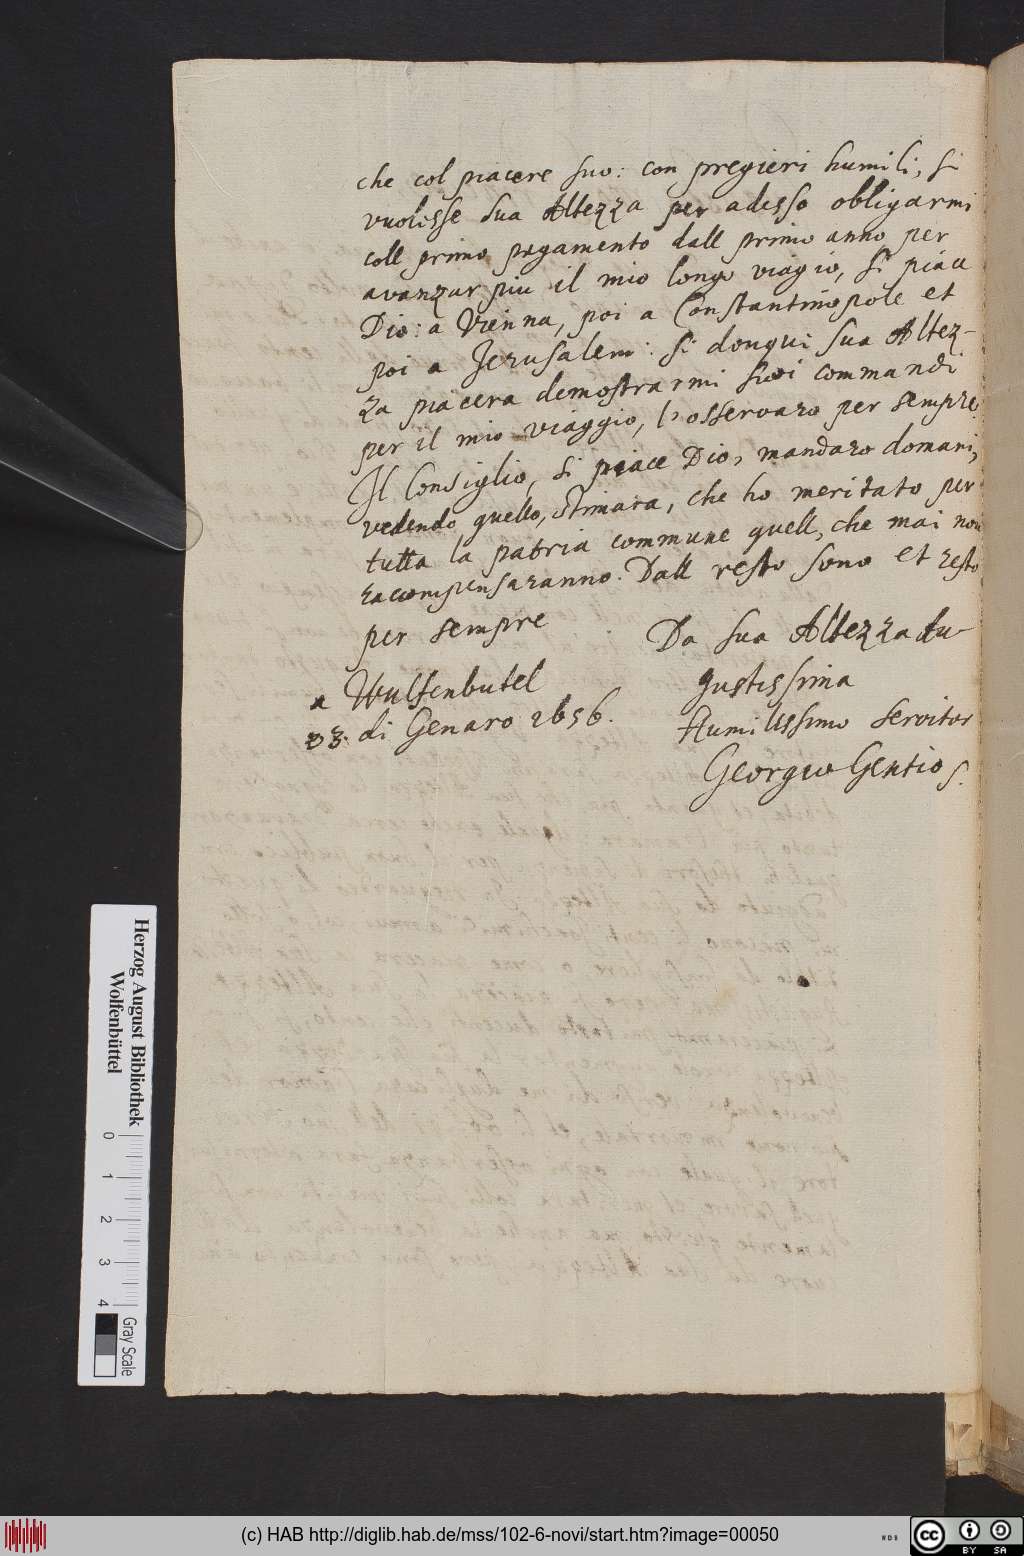 che col piacere suo: con pregieri humili, si
vuolesse sua Altezza per adesso obligarmi
coll primo pagamento dall primo anno per
avanzar piu il mio longo viagio, si piace
Dio: a Vienna, poi a Constantinopole et
poi a Jerusalem: si donqui sua Altez-
za piacera demostrarmi suoi commandi
per il mio viaggio, l'osservaro per sempre
Il Consiglio, si piace Dio, mandaro domani,
vedendo quello, stimara, che ho meritato per
tutta la patria commune quell, che mai non
racompensaranno. Dall resto sono et resto
per sempre
Da sua Altezza Au-
gustissima
a Wulfenbutel
23. di Genaro 1656.
Humilissimo servitor
Georgio Gentio
Herzog August Bibliothek
Wolfenbüttel
0 1 2 3 4
Gray Scale
(c) HAB http://diglib.hab.de/mss/102-6-novi/start.htm?image=00050
WDB
cc BY SA